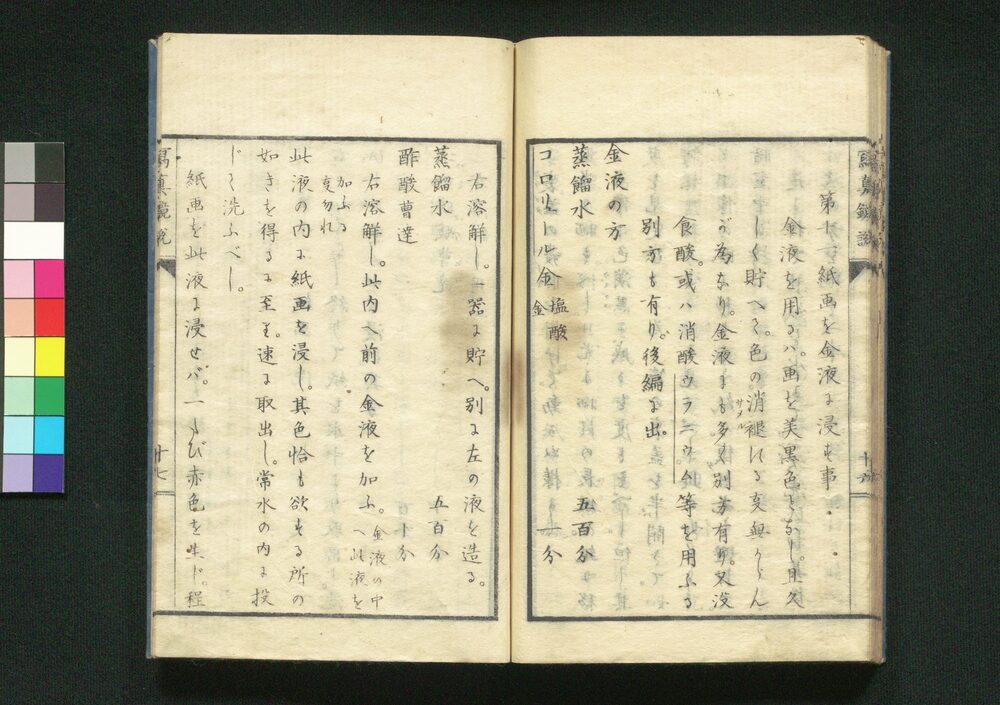 寫真鏡説
十六
第十 紙画を金液に浸す事
金液を用るハ。画を美黒色となし。且久
しく貯へて。色の消褪する叓無からん
が為なり。金液にも多く別方有り。又没
食酸或ハ消酸ウラニウム等を用ふる
別方も有り。後編に出。
金液の方
蒸餾水 五百分
コロリール金 塩酸金 一分
右溶解し。一器に貯へ。別に左の液を造る。
蒸餾水 五百分
酢酸曹達 分
右溶解し。此内へ前の金液を加ふ。金液の中へ此液を
加ふる叓勿れ
此液の内に紙画を浸し。其色恰も欲する所の
如きを得るに至ば。速に取出し。常水の内に投
じて洗ふべし。
紙画を此液に浸せバ。一たび赤色を生じ。程
寫真鏡説
十七